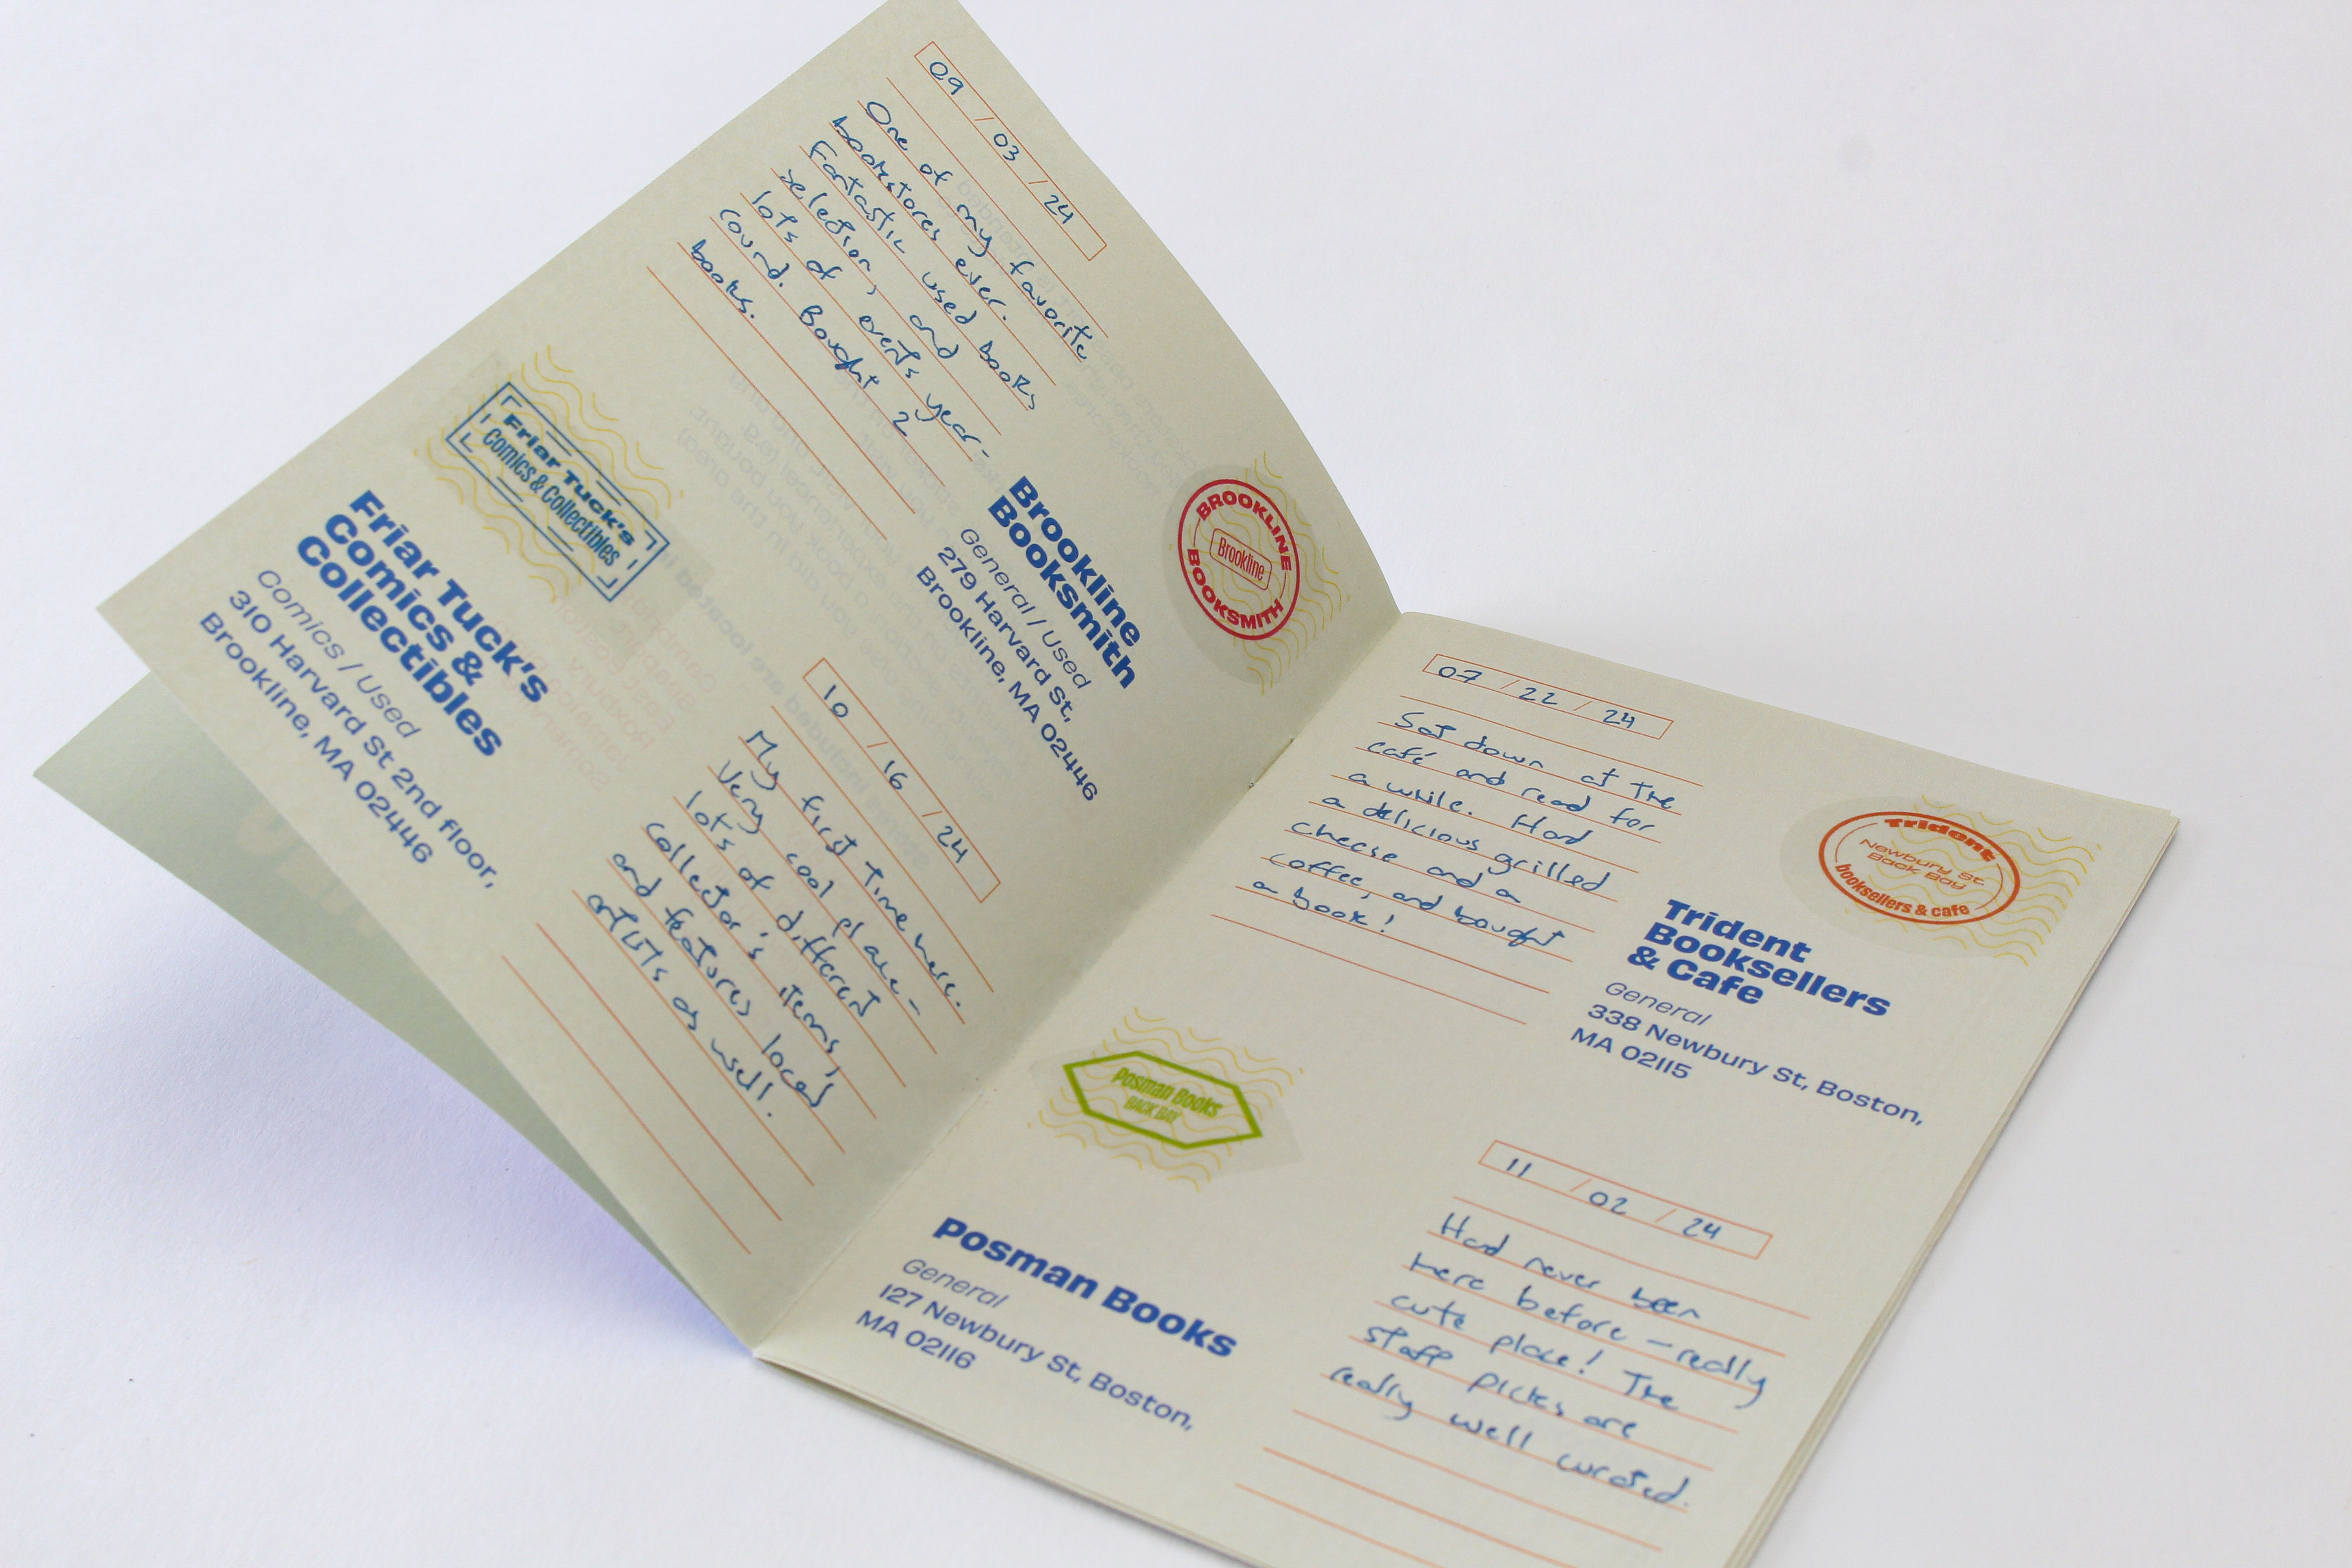 09 / 03 / 24
One of my favorite
bookstores ever.
Fantastic used books
selection, and
lots of events year-
round. Bought 2
books.
BROOKLINE
Brookline
BOOKSMITH
Brookline
Booksmith
General / Used
279 Harvard St,
Brookline, MA 02446
Friar Tuck's
Comics & Collectibles
Friar Tuck's
Comics &
Collectibles
Comics / Used
310 Harvard St 2nd floor,
Brookline, MA 02446
10 / 16 / 24
My first time here.
Very cool place-
lots of different
collector's items,
and features local
artists as well.
07 / 22 / 24
Sat down at the
café and read for
a while. Had
a delicious grilled
cheese and a
coffee, and bought
a book!
Trident
Newbury St.
Back Bay
booksellers & cafe
Trident
Booksellers
& Cafe
General
338 Newbury St, Boston,
MA 02115
Posman Books
BACK BAY
Posman Books
General
127 Newbury St, Boston,
MA 02116
11 / 02 / 24
Had never been
here before – really
cute place! The
staff picks are
really well curated.